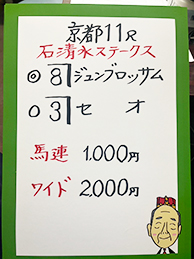 京都11R
石清水ステークス
◎ 8 ジュンブロッサム
○ 3 セオ
馬連 1,000円
ワイド 2,000円